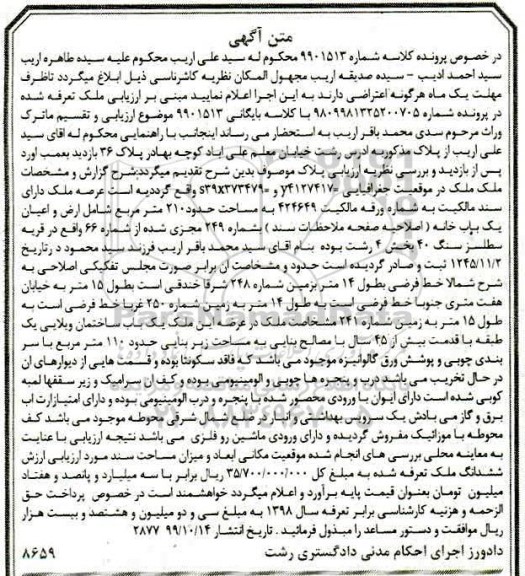 متن آگهی
در خصوص پرونده کلاسه شماره ۹۹۰۱۵۱۳ محکوم له سید علی اریب محکوم علیه سیده طاهره اریب
سید احمد ادیب - سیده صدیقه اریب مجهول المکان نظریه کاشرناسی ذیل ابلاغ میگردد تاظرف
مهلت یک ماه هرگونه اعتراضی دارند به این اجرا اعلام نمایید مبنی بر ارزیابی ملک تعرفه شده
در پرونده شماره ۹۸۰۹۹۸۱۳۳۵۲۰۰۷۰۵ با کلاسه بایگانی ۹۹۰۱۵۱۳ موضوع ارزیابی و تقسیم ماترک
وراث مرحوم سدی محمد باقر اریب به استحضار می رساند اینجانب با راهنمایی محکوم له اقای سید
علی اریب از پلاک مذکور به ادرس رشت خیابان معلم علی اباد کوچه بهادر پلاک ۳۶ بازدید بعمب اورد
پس از بازدید و بررسی نظریه ارزیابی پلاک موصوف بدین شرح تقدیم میگردد:شرح گزارش و مشخصات
ملک ملک در موقعیت جغرافیایی و واقع گردیده است عرصه ملک دارای
سند مالکیت به شماره ورقه مالکیت ۴۲۴۶۴۹ به مساحت حدود ۲۱۰ متر مربع شامل ارض و اعیان
یک باب خانه ( اصلاحیه صفحه ملاحظات سند ) بشماره ۲۴۹ مجزی شده از شماره ۶۶ واقع در قریه
سطلسر سنگ ۴۰ بخش ۴ رشت بوده بنام اقای سید محمد باقر اریب فرزند سید محمود در تاریخ
۱۲۴۵/۱۱/۲ ثبت و صادر گردیده است حدود و مشخصات آن برابر صورت مجلس تفکیکی اصلاحی به
شرح شمالا خط فرضی بطول ۱۴ متر بزمین شماره ۲۴۸ شرقا خندقی است بطول ۱۵ متر به خیابان
هفت متری جنوبا خط فرضی است به طول ۱۴ متر به زمین شماره ۲۵۰ غربا خط فرضی است به
طول ۱۵ متر به زمین شماره ۲۴۱ مشخصات ملک در عرصه این ملک یک باب ساختمان ویلایی یک
طبقه با قدمت بیش از ۴۵ سال با مصالح بنایی به مساحت زیر بنایی حدود ۱۱۰ متر مربع با سر
بندی چوبی و پوشش ورق گالوانیزه موجود می باشد که فاقد سکونتا بوده و قسمت هایی از دیوارهای ان
در حال تخریب می باشد درب و پنجره ها چوبی و الومینیومی بوده و کف ان سرامیک و زیر سقفها لمبه
کوبی شده است دارای ایوان با ورودی محصور شده با پنجره و درب الومینیومی بوده و دارای امتیازات اب
برق و گاز می باشد یک سرویس بهداشتی و انبار در ضلع شمال شرقی محوطه موجود می باشد کف
محوطه با موزائیک مفروش گردیده و دارای ورودی ماشین رو فلزی می باشد نتیجه ارزیابی با عنایت
به معاینه محلی بررسی های انجام شده موقعیت مکانی ابعاد و میزان مساحت سند مورد ارزیابی ارزش
ششدانگ ملک تعرفه شده به مبلغ کل ۳۵/۷۰۰/۰۰۰/۰۰۰ ریال برابر با سه میلیارد و پانصد و هفتاد
میلیون تومان بعنوان قیمت پایه برآورد و اعلام میگردد خواهشمند است در خصوص پرداخت حق
الزحمه و هزنیه کارشناسی برابر تعرفه سال ۱۳۹۸ به مبلغ سی و دو میلیون و هشتصد و بیست هزار
ریال موافقت و دستور مساعد را مبذول فرمائید . تاریخ انتشار ۹۹/۱۰/۱۴ ۲۸۷۷
دادورز اجرای احکام مدنی دادگستری رشت ۸۶۵۹